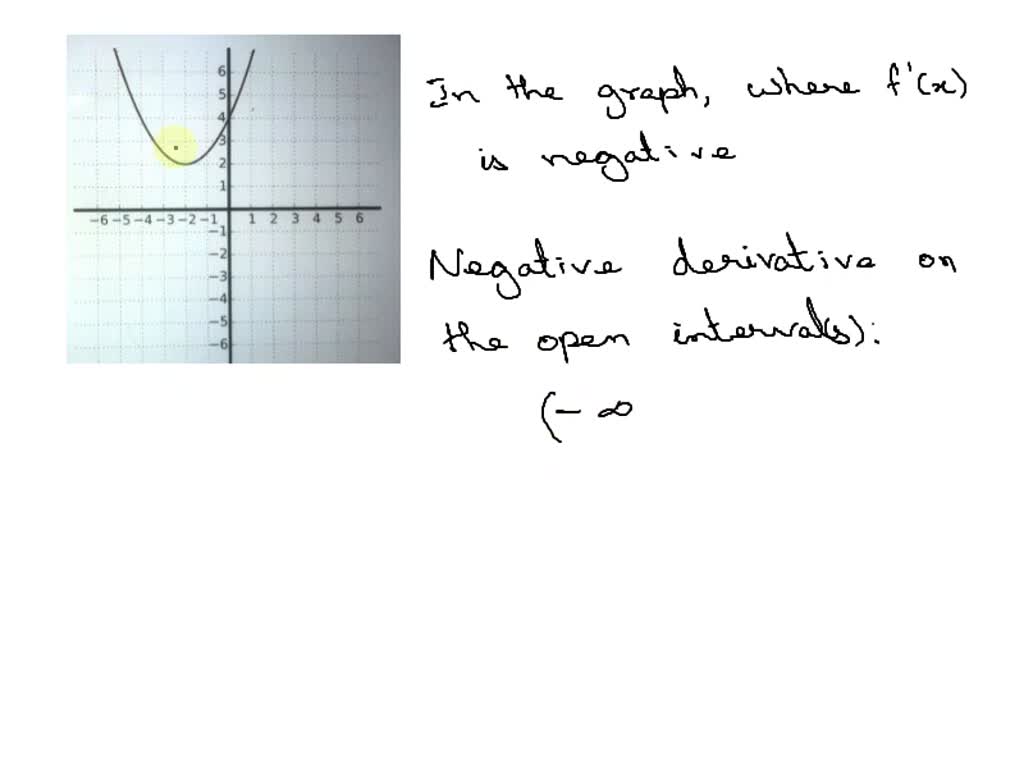 6
5
4
3
2
1
−6 −5 −4 −3 −2 −1 1 2 3 4 5 6
−1
−2
−3
−4
−5
−6
In the graph, where f'(x)
is negative
Negative derivative on
the open interval(s):
(- ∞